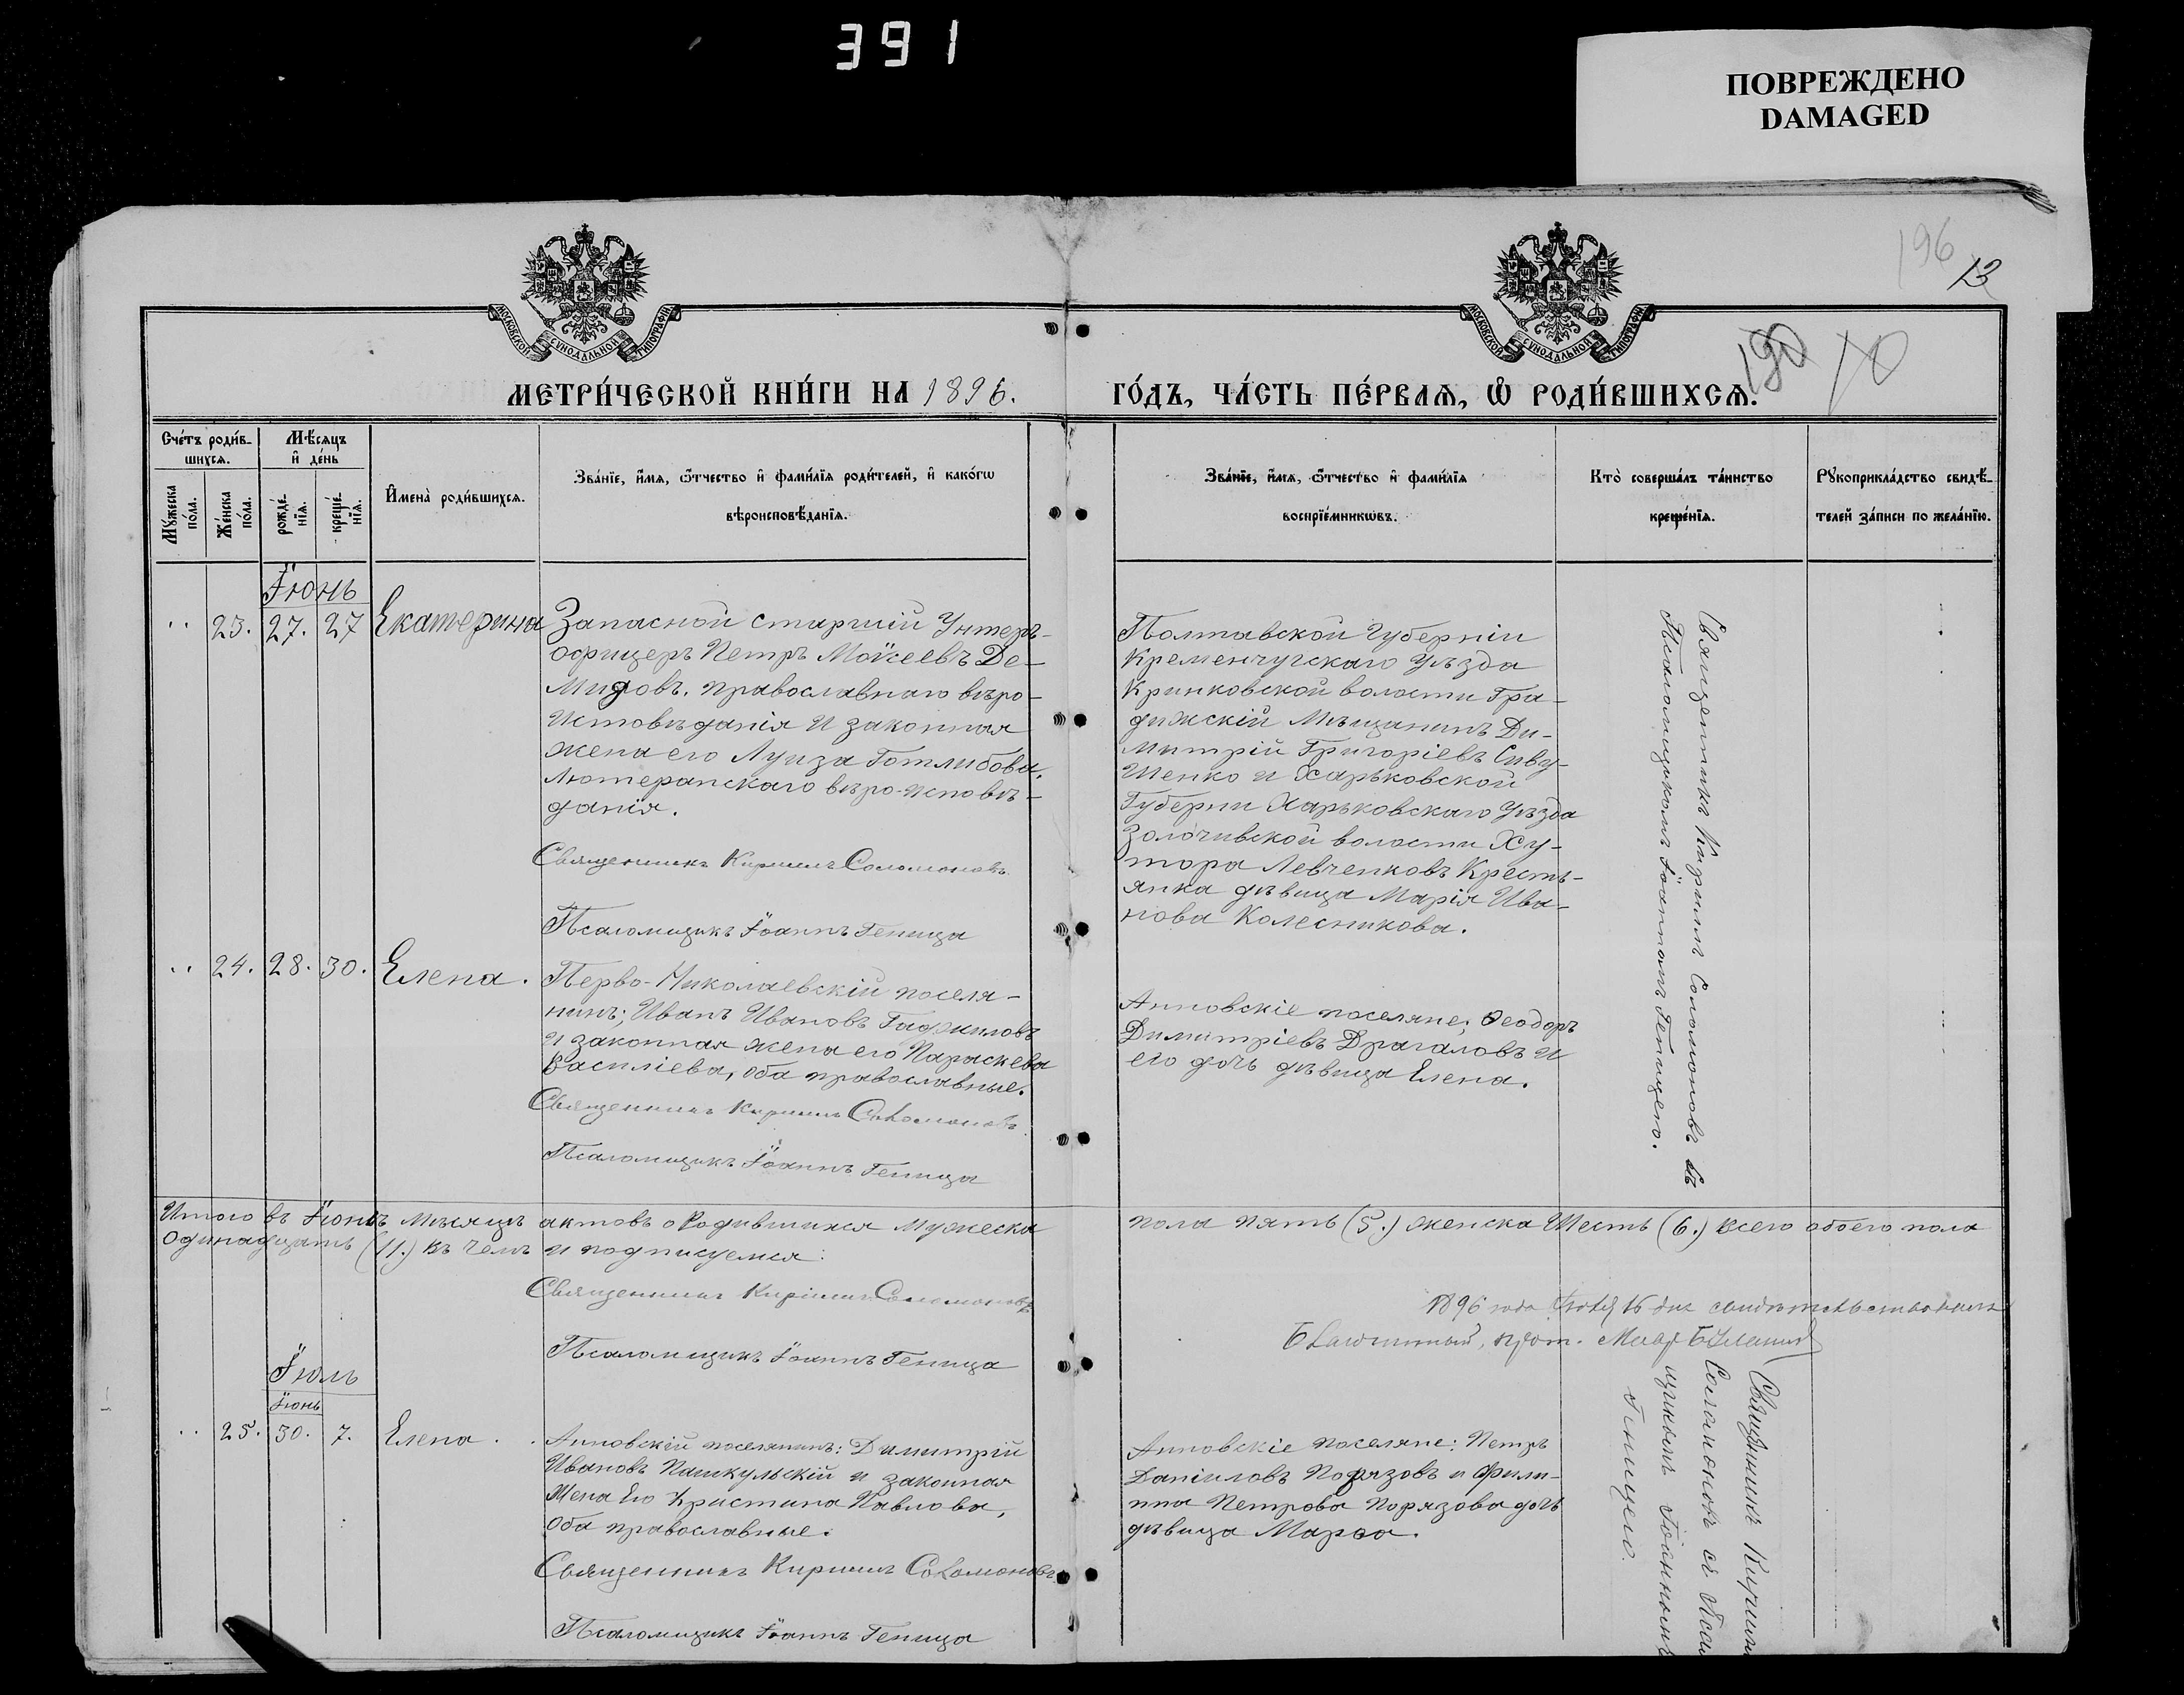 391
ПОВРЕЖДЕНО
DAMAGED
196
13
190
10
МОСКОВСКОЙ СѴНОДАЛЬНОЙ ТИПОГРАФІИ
МОСКОВСКОЙ СѴНОДАЛЬНОЙ ТИПОГРАФІИ
МЕТРИ́ЧЕСКОЙ КНИ́ГИ НА 1896.
ГО́ДЪ, ЧА́СТЬ ПЕ́РВАѦ, Ѽ РОДИ́ВШИХСѦ.
Сче́тъ роди́в-
шихсѧ.
Мѣ́сѧцъ
и҆ де́нь
Мꙋ́жеска
по́ла.
Же́нска
по́ла.
рожде́-
нїѧ.
креще́-
нїѧ.
И҆мена̀ роди́вшихсѧ.
Зва́нїе, и҆́мѧ, ѻ҆́тчество и҆ фами́лїѧ роди́телей, и҆ како́гѡ
вѣроисповѣ́данїѧ.
Зва́нїе, и҆́мѧ, ѻ҆́тчество и҆ фами́лїѧ
воспрїе́мникѡвъ.
Кто̀ соверша́лъ та́инство
креще́нїѧ.
Рꙋкоприкла́дство свидѣ́-
телей за́писи по жела́нїю.
Іюнь
23. 27. 27 Екатерина
Запасной старшій Унтеръ-
офицеръ Петръ Моѵсеевъ Де-
мидовъ, православнаго вѣро-
исповѣданія и законная
жена его Луиза Готлибова,
Лютеранскаго вѣро-исповѣ-
данія.
Священникъ Кириллъ Соломоновъ
Псаломщикъ Іоаннъ Геница
Полтавской Губерніи
Кременчугскаго уѣзда
Кринковской волости Гра-
дижскій Мѣщанинъ Ди-
митрій Григоріевъ Сиву-
шенко и Харьковской
Губерніи Харьковскаго уѣзда
Золочивской волости Ху-
тора Левченковъ Кресть-
янка дѣвица Марія Ива-
нова Колесникова.
Священникъ Кириллъ Соломоновъ съ
Псаломщикомъ Іоанномъ Геницею.
24. 28. 30. Елена.
Перво-Николаевскій поселя-
нинъ; Иванъ Ивановъ Гафиловъ
и законная жена его Параскева
Василіева, оба православные.
Священникъ Кириллъ Соломоновъ
Псаломщикъ Іоаннъ Геница
Анновскіе поселяне; Ѳеодоръ
Димитріевъ Драгаловъ и
его дочь дѣвица Елена.
Итого въ Іюнѣ мѣсяцѣ актовъ о Родившихся Мужеска пола пять (5.) женска Шесть (6.) всего обоего пола
Одинадцать (11.) въ чемъ и подписуемся:
Священникъ Кириллъ Соломоновъ
Псаломщикъ Іоаннъ Геница
1896 года Іюля 16 дня свидѣтельствовалъ
Благочинный, прот.
Іюль
Іюнь
25. 30. 7. Елена.
Анновскій поселянинъ: Димитрій
Ивановъ Пашкульскій и законная
жена Его Христина Павлова,
Оба православные.
Священникъ Кириллъ Соломоновъ
Псаломщикъ Іоаннъ Геница
Анновскіе поселяне: Петръ
Даніиловъ Порязовъ и Фили-
ппа Петрова Порязова дочь
дѣвица Марѳа.
Священникъ Кириллъ
Соломоновъ съ Псалом-
щикомъ Іоанномъ
Геницею.